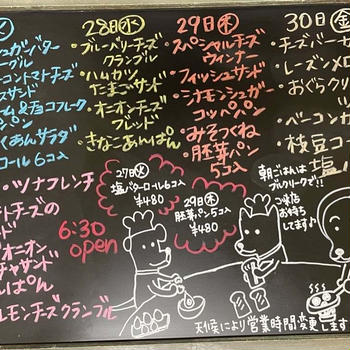 28日(水)
ブルーベリーチーズ
クランブル
ハムカツ
たまごサンド
オニオンチーズ
ブレッド
きなこあんぱん
29日(木)
スペシャルチーズ
ウィンナー
フィッシュサンド
シナモンシュガー
コッペパン
みそつくね
胚芽パン
5コ入
30日(金)
チーズバー
レーズンメロ
おぐらクリ
ベーコン
枝豆コー
塩
シュガーバター
ーコントマトチーズ
スサンド
ム&チョコフレーク
パン
くあんサラダ
コール6コ入
ツナフレンチ
トチーズの
オニオン
チャサンド
んぱん
レモンチーズクランブル
6:30
open
27日(火)
塩バターロール6コ入
¥480
29日(木)
胚芽パン5コ入
¥480
朝ごはんは
ブルクリークで!!
ご来店
お待ち
してます♪
天候により営業時間変更します